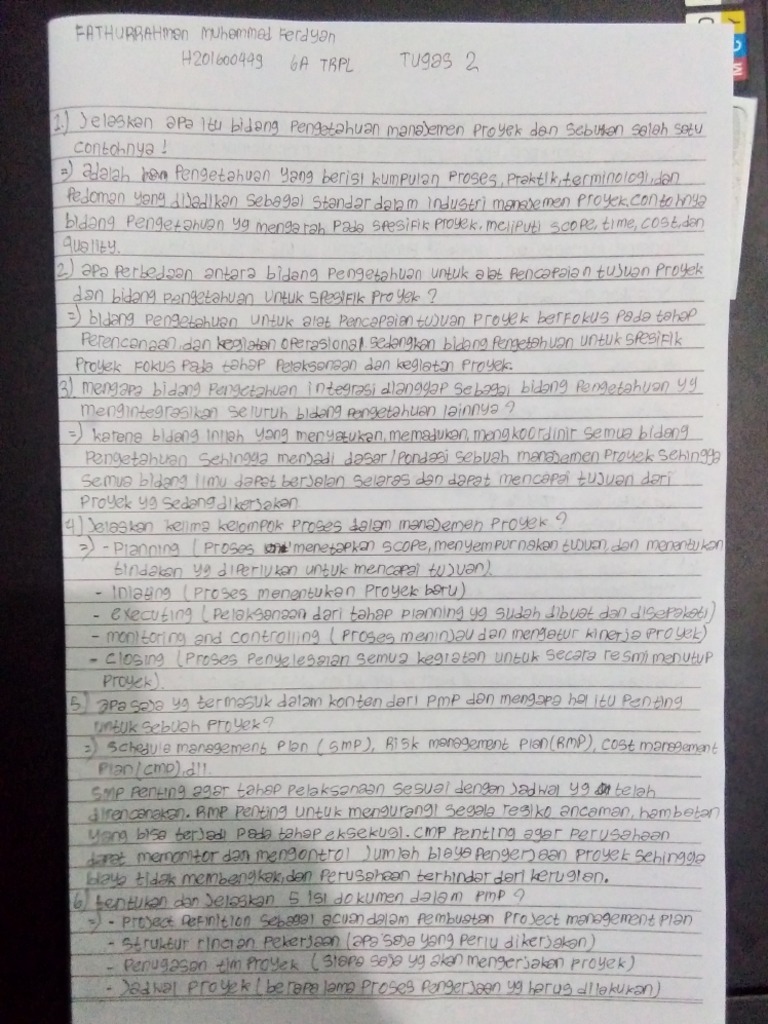 FATHURRAHman Muhammad Ferdyan
H201600449 6A TRPL TUgas 2
1.) Jelaskan apa itu bidang Pengetahuan manajemen Proyek dan sebutkan salah satu
contohnya !
=) adalah Pengetahuan yang berisi kumpulan Proses, Praktik, terminologi, dan
Pedoman yang dijadikan sebagai standar dalam industri manajemen Proyek, contohnya
bidang Pengetahuan yg mengarah Pada spesifik Proyek. meliputi scope, time, cost, dan
quality.
2.) apa Perbedaan antara bidang Pengetahuan untuk alat Pencapaian tujuan Proyek
dan bidang Pengetahuan untuk spesifik Proyek ?
=) bidang Pengetahuan untuk alat Pencapaian tujuan Proyek berfokus Pada tahap
Perencanaan dan kegiatan operasional sedangkan bidang Pengetahuan untuk spesifik
Proyek fokus Pada tahap Pelaksanaan dan kegiatan Proyek.
3.) mengapa bidang Pengetahuan integrasi dianggap sebagai bidang Pengetahuan yg
mengintegrasikan seluruh bidang Pengetahuan lainnya ?
=) karena bidang inilah yang menyatukan, memadukan, mengkoordinir semua bidang
Pengetahuan sehingga menjadi dasar / Pondasi sebuah manajemen Proyek sehingga
semua bidang ilmu dapat berjalan selaras dan dapat mencapai tujuan dari
Proyek yg sedang dikerjakan
4.) Jelaskan kelima kelompok Proses dalam manajemen Proyek ?
=) - Planning (Proses menetapkan scope, menyempurnakan tujuan, dan menentukan
tindakan yg diperlukan untuk mencapai tujuan).
- Iniating (Proses menentukan Proyek baru)
- executing (Pelaksanaan dari tahap Planning yg sudah dibuat dan disepakati)
- monitoring and controlling (Proses meninjau dan mengatur kinerja Proyek)
- Closing (Proses Penyelesaian semua kegiatan untuk secara resmi menutup
Proyek).
5.) apa saja yg termasuk dalam konten dari PMP dan mengapa hal itu Penting
untuk sebuah Proyek ?
=) Schedule management Plan (SMP), Risk management Plan (RMP), cost management
Plan (CMP), dll.
SMP Penting agar tahap Pelaksanaan sesuai dengan Jadwal yg telah
direncanakan. RMP Penting untuk mengurangi segala resiko ancaman, hambatan
yang bisa terjadi Pada tahap eksekusi. CMP Penting agar Perusahaan
dapat memonitor dan mengontrol Jumlah biaya Pengerjaan Proyek sehingga
biaya tidak membengkak, dan Perusahaan terhindar dari kerugian.
6.) tentukan dan Jelaskan 5 isi dokumen dalam PMP ?
=) - Project Definition sebagai acuan dalam Pembuatan Project management Plan
- struktur rincian Pekerjaan (apa saja yang Perlu dikerjakan)
- Penugasan tim Proyek (siapa saja yg akan mengerjakan Proyek)
- Jadwal Proyek (berapa lama Proses Pengerjaan yg harus dilakukan)
M C